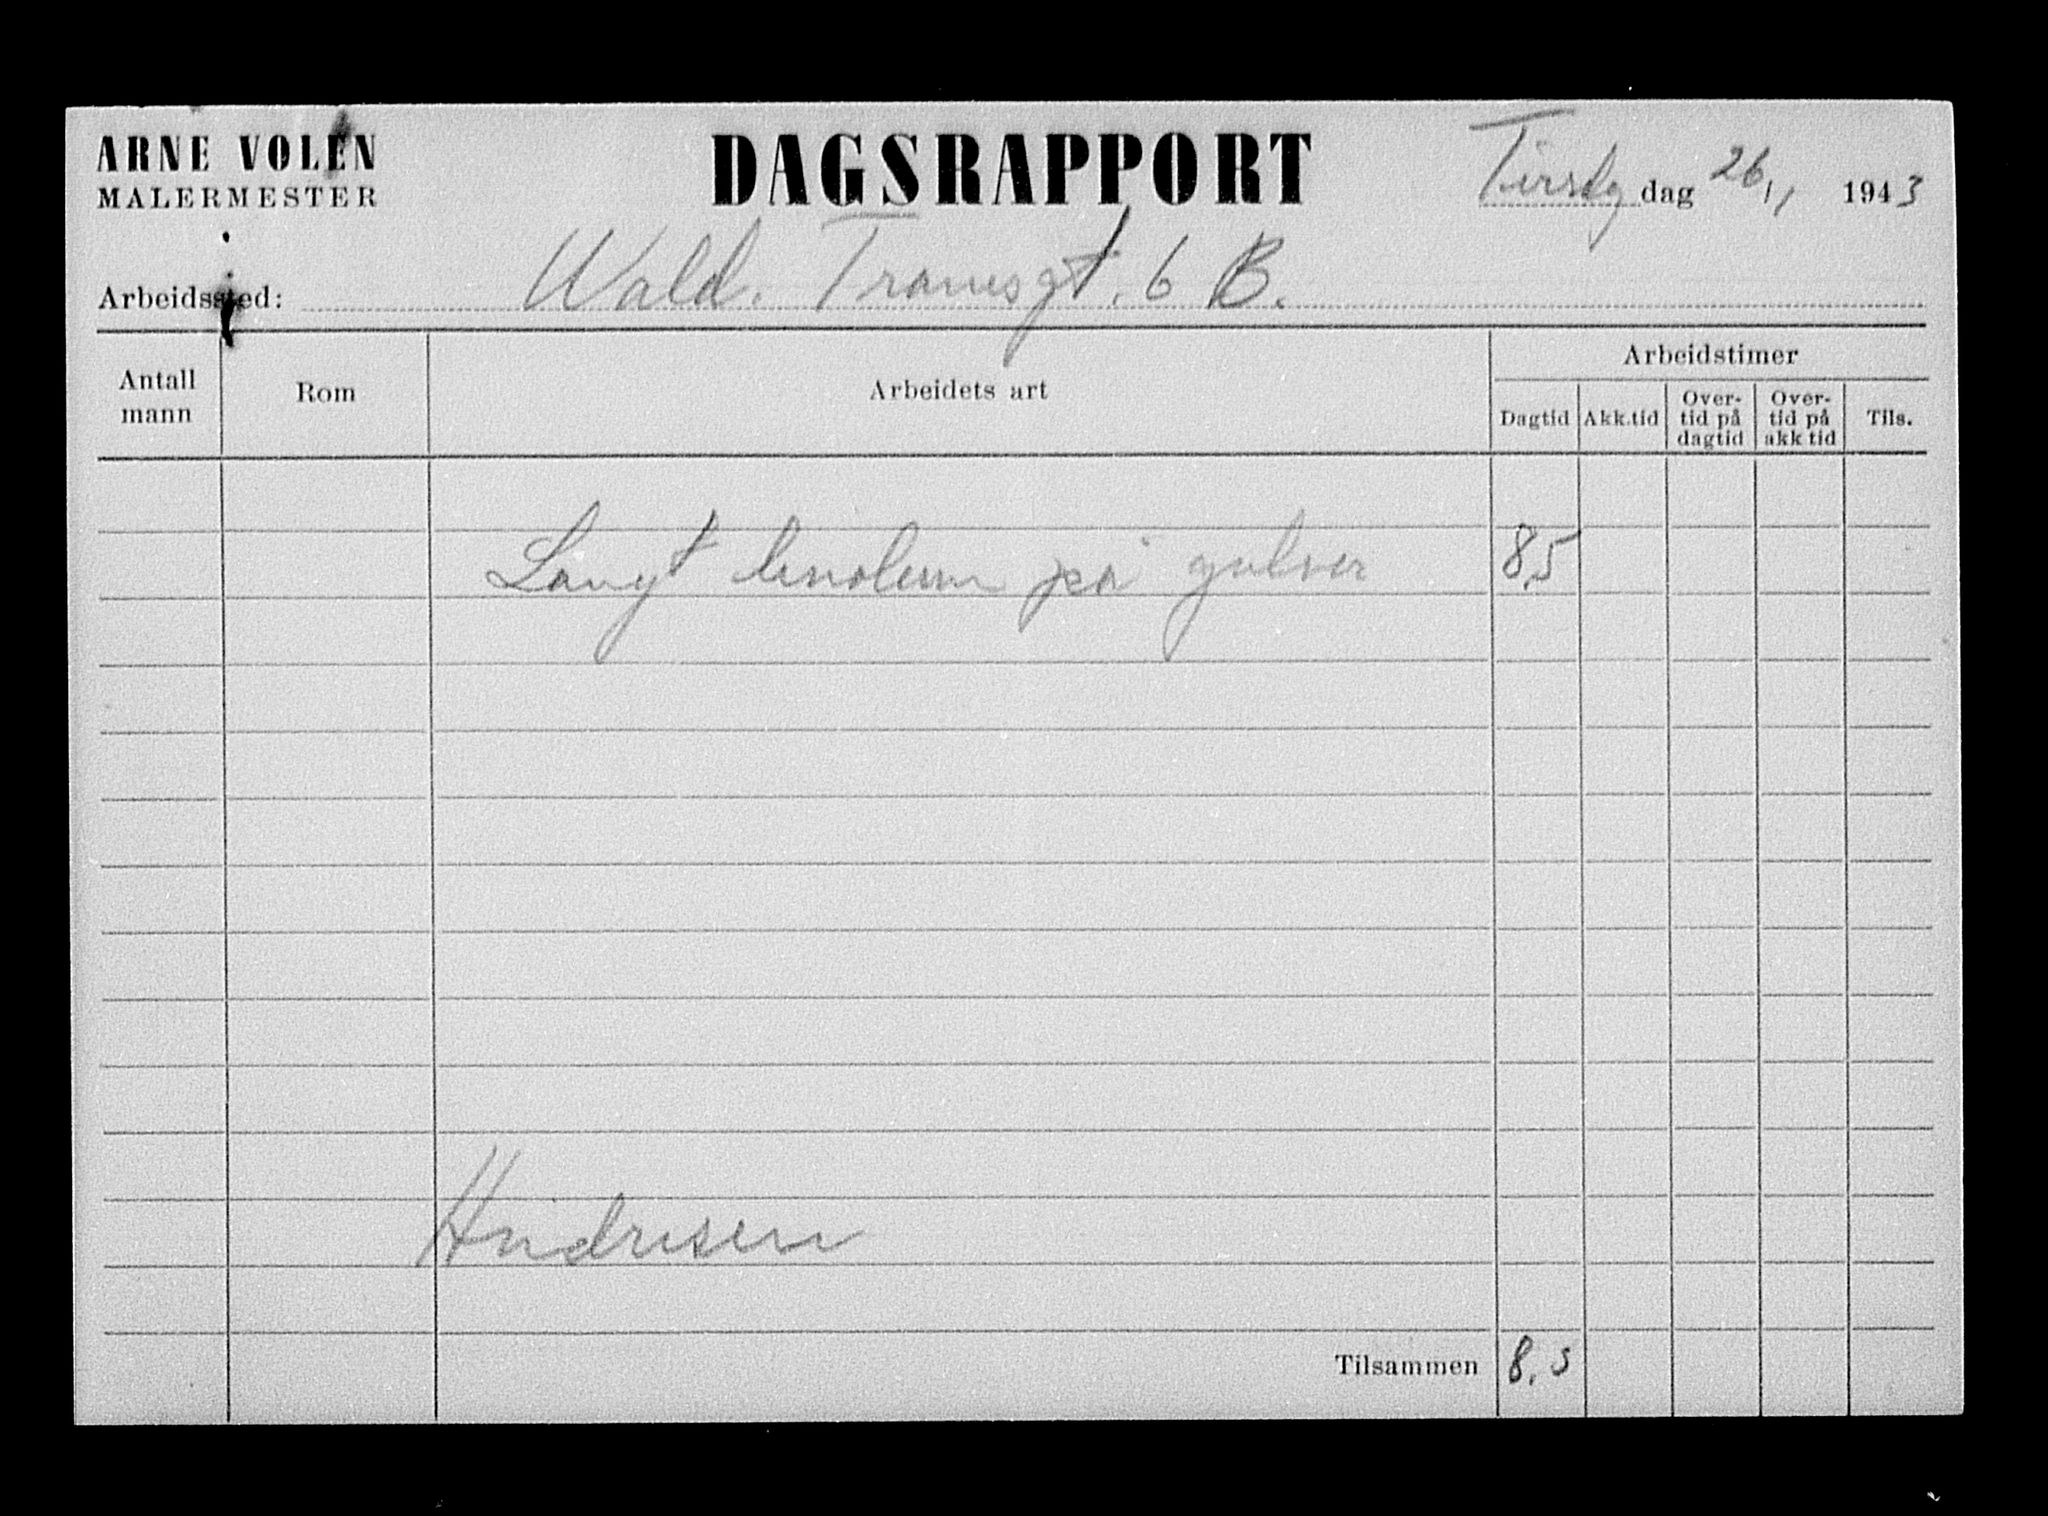 ARNE VOLEN
MALERMESTER
DAGSRAPPORT
Tirsdg dag 26/1 1943
Arbeidssted: Wald. Tranesgt. 6 B.
Antall mann
Rom
Arbeidets art
Arbeidstimer
Dagtid
Akk.tid
Over-
tid på
dagtid
Over-
tid på
akk tid
Tils.
Langt linoleum på gulver 8,5
Andresen
Tilsammen 8,5